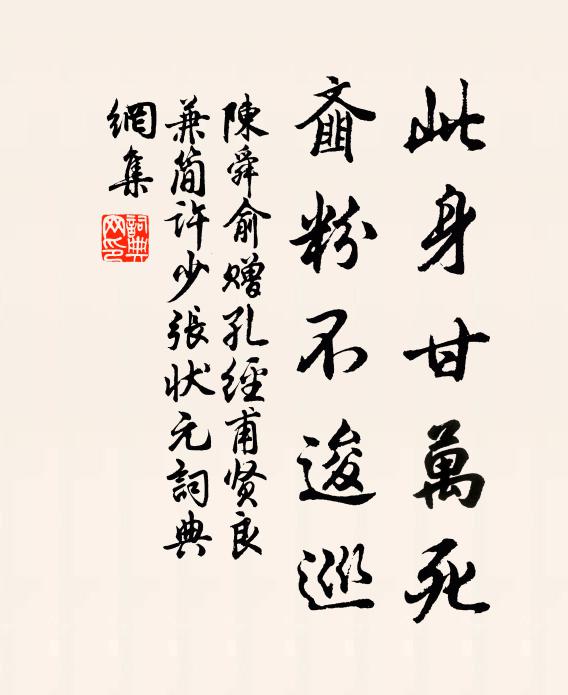 此身甘萬死
齑粉不逡巡
陳舜俞赠孔經甫贤良
兼简許少張狀元詞典
網集
詞典網印